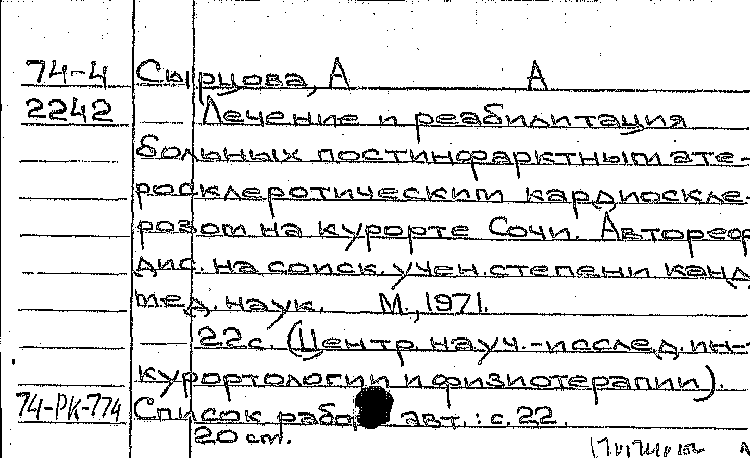 74-4 Сырцова, А А
2242 Лечение и реабилитация
больных постинфарктным ате-
росклеротическим кардиоскле-
розом на курорте Сочи. Автореф
дис. на соиск. учен. степени канд
мед. наук. М., 1971.
22с. (Центр науч.-исслед. ин-т
курортологии и физиотерапии).
74-РК-774 Список работ авт.: с. 22.
20 см.